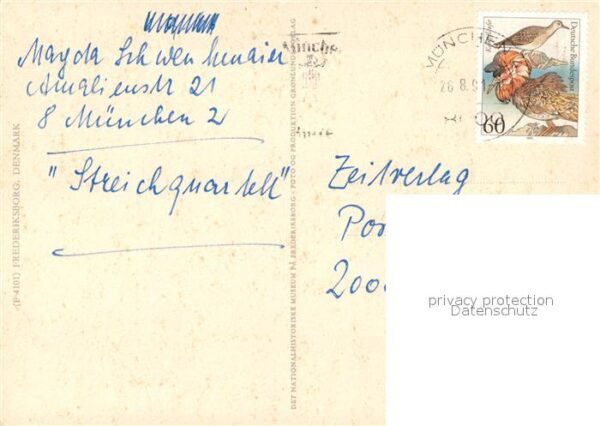 Magda Schwenkmaier
Amalienstr 21
8 München 2
"Streichquartett"
(P-4101) FREDERIKSBORG, DENMARK
DET NATIONALHISTORISKE MUSEUM PÅ FREDERIKSBORG - FOTO OG PRODUKTION GRØNLUNDS FORLAG
MÜNCHEN
26.8.91
Deutsche Bundespost
60
Zeitverlag
Po
2000
privacy protection
Datenschutz